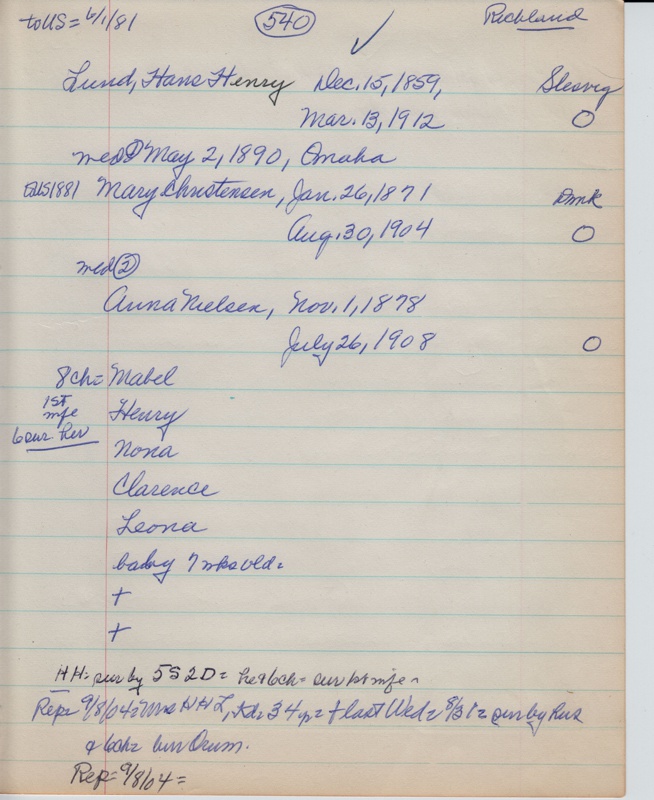 to US = 6/1/81 540 ✓ Richland
Lund, Hans Henry Dec. 15, 1859, Slesvig
Mar. 13, 1912 O
med ① May 2, 1890, Omaha
EUS 1881 Mary Christensen, Jan. 26, 1871 Dmk
Aug. 30, 1904 O
med ②
Anna Nielsen, Nov. 1, 1878
July 26, 1908 O
8 ch = Mabel
1ST mge Henry
6 sur. her Nona
Clarence
Leona
baby 7 wks old =
+
+
HH = sur by 5S 2D = he & 6 ch = sur 1st mge
Rep = 9/8/04 = Mrs HHL, 34 yr = + last Wed = 8/31 = sur by Hus
& 6 ch = bur Drum.
Rep = 9/8/04 =